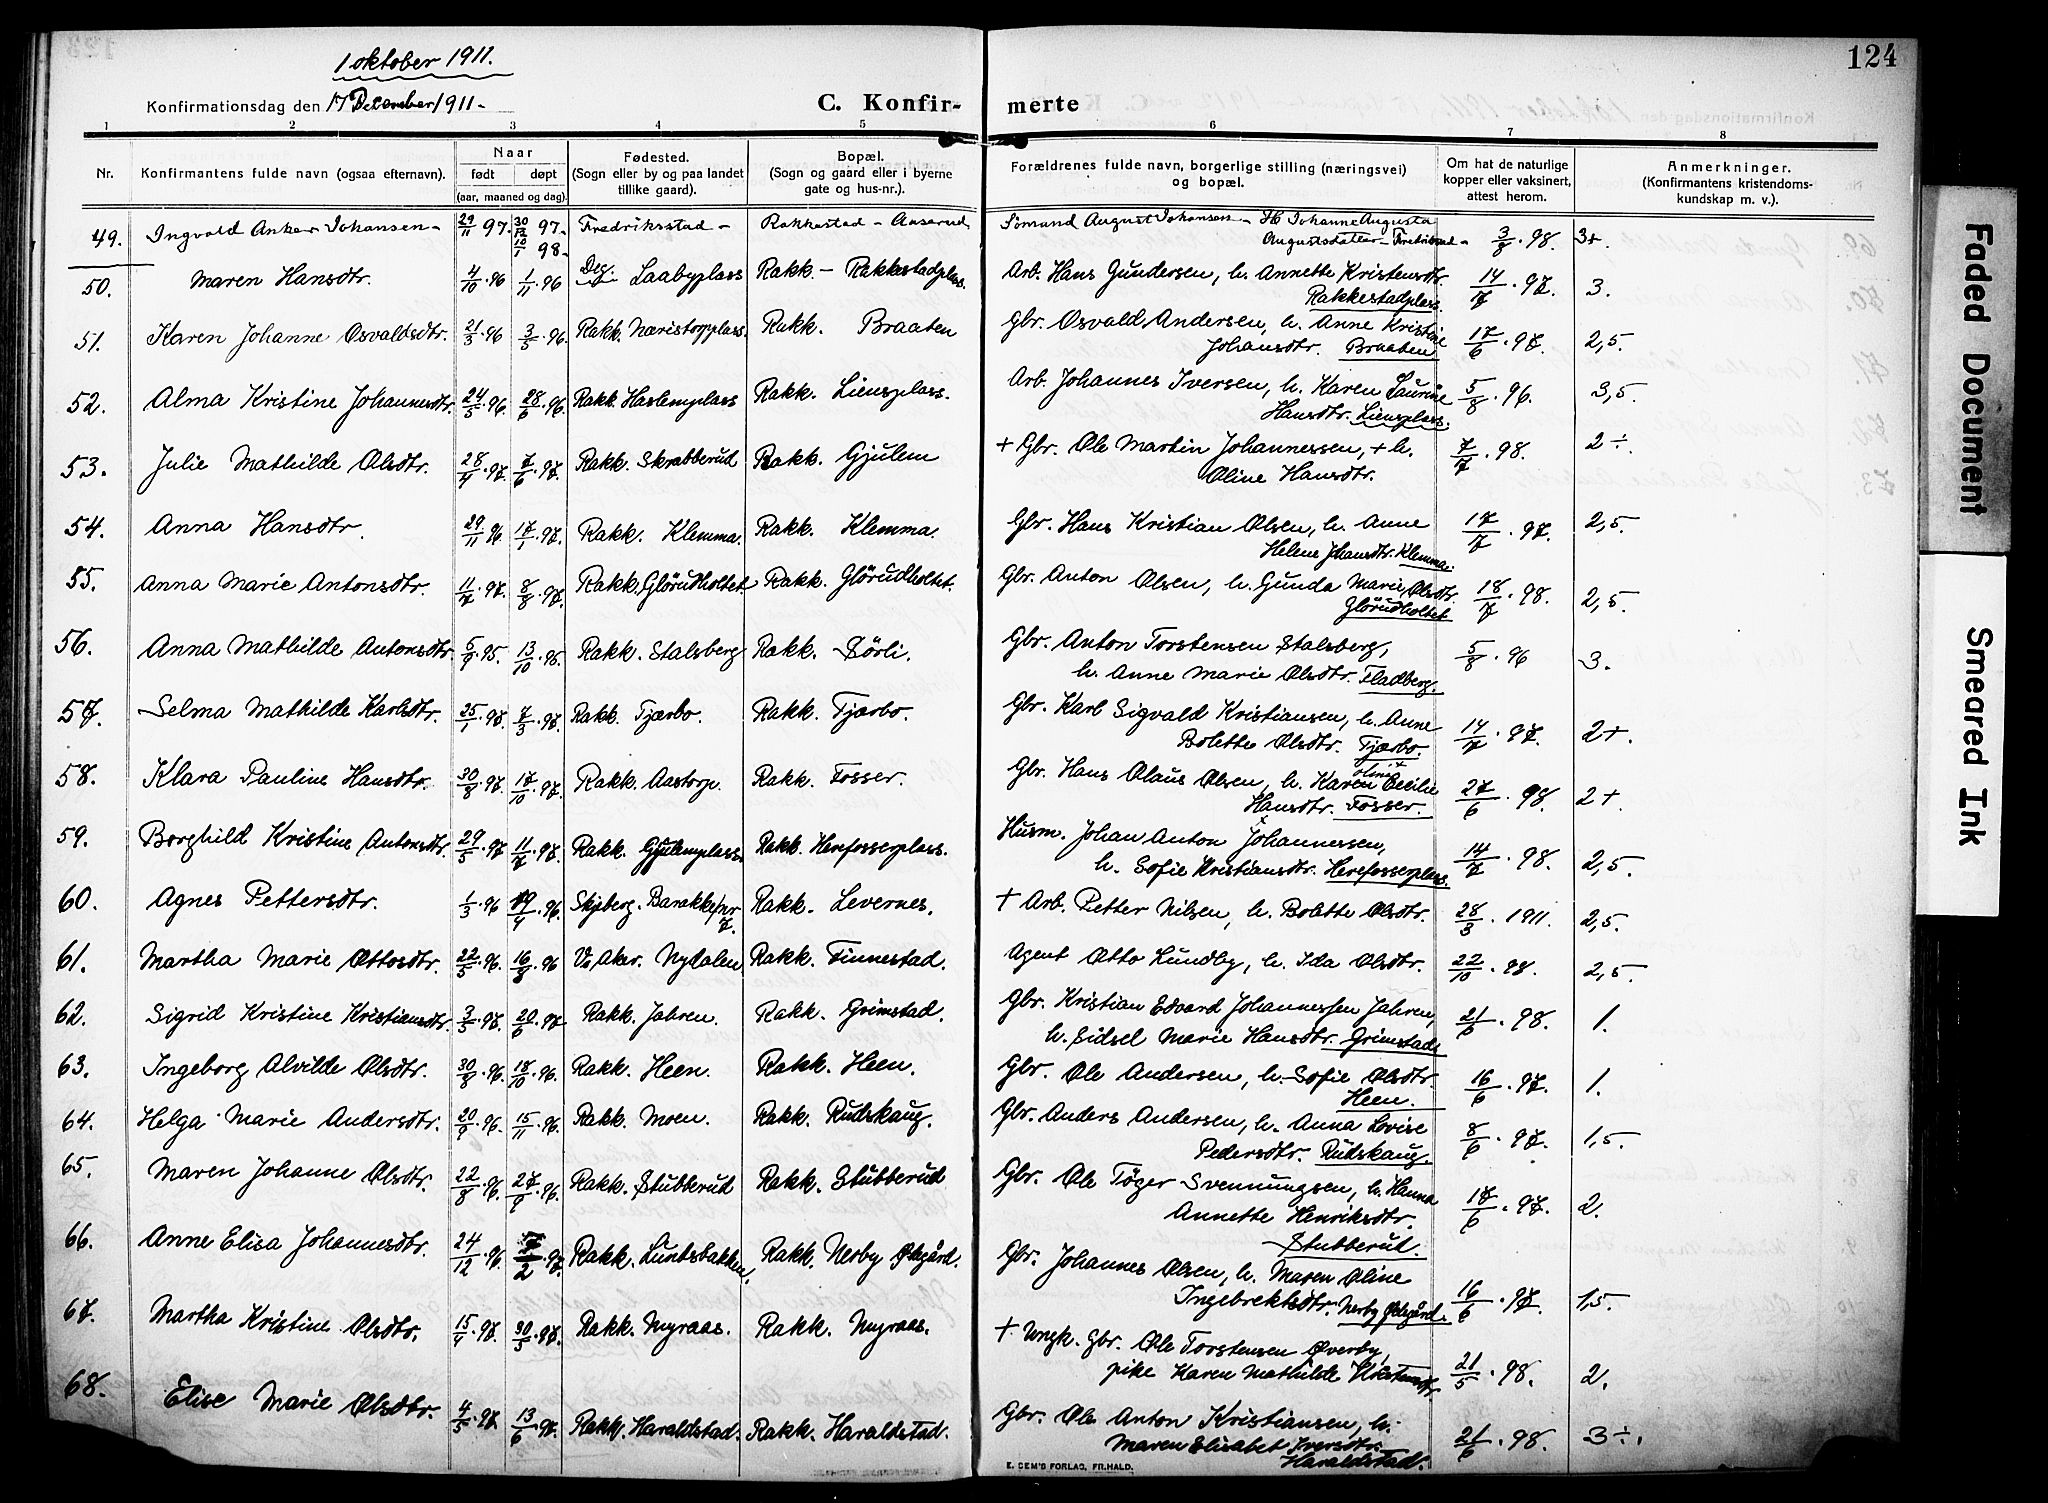 124
1 oktober 1911.
Konfirmationsdag den 17 Desember 1911-
C. Konfir-
merte
1 2 3 4 5 6 7 8
Nr.
Konfirmantens fulde navn (ogsaa efternavn).
Naar
født døpt
(aar, maaned og dag).
Fødested.
(Sogn eller by og paa landet
tillike gaard).
Bopæl.
(Sogn og gaard eller i byerne
gate og hus-nr.).
Forældrenes fulde navn, borgerlige stilling (næringsvei)
og bopæl.
Om hat de naturlige
kopper eller vaksinert,
attest herom.
Anmerkninger.
(Konfirmantens kristendoms-
kundskap m. v.).
49. Ingvald Anker Johansen- 29/11 97. 30/12 97- 10/1 98- Fredriksstad- Rakkestad - Aaserud Sømund August Johansen- H. Johanne Augusta
Augustsdatter - Fredriksstad- 3/8. 98. 3+.
50. Maren Hansdtr. 4/10. 96 1/11. 96 Deg. Laabyplass Rakk. - Rakkestadplass. Arb. Hans Gundersen, h. Annette Kristensdtr.
Rakkestadplass. 14/7. 97. 3.
51. Karen Johanne Osvaldsdtr. 21/3. 96 3/5. 96. Rakk. Næristorpplass. Rakk. Braaten Gbr. Osvald Andersen, h. Anne Kristine
Johansdtr. Braaten 17/6. 97. 2,5.
52. Alma Kristine Johannesdtr. 24/5. 96. 28/6. 96. Rakk. Haslemplass Rakk. Liensplass. Arb. Johannes Iversen, h. Karen Laurine
Hansdtr. Liensplass. 5/8. 96. 3,5.
53. Julie Mathilde Olsdtr. 28/4. 97. 7/6. 97. Rakk. Skrabberud Rakk. Gjulem + Gbr. Ole Martin Johannessen, + h.
Oline Hansdtr. 7/7. 98. 2÷
54. Anna Hansdtr. 29/11. 96 17/1. 97. Rakk. Klemma. Rakk. Klemma. Gbr. Hans Kristian Olsen, h. Anne
Helene Johansdtr. Klemma. 17/7. 97. 2,5.
55. Anna Marie Antonsdtr. 11/7. 97. 8/8. 97. Rakk. Glörudholtet Rakk. Glörudholtet. Gbr. Anton Olsen, h. Gunda Marie Olsdtr.
Glörudholtet 18/7. 98. 2,5.
56. Anna Mathilde Antonsdtr. 5/9. 95. 13/10. 95. Rakk. Stalsberg Rakk. Sörli. Gbr. Anton Torstensen Stalsberg,
h. Anne Marie Olsdtr. Fladberg. 5/8. 96 3.
57. Selma Mathilde Karlsdtr. 25/1. 97. 7/3. 97. Rakk. Tjærbo. Rakk. Tjærbo. Gbr. Karl Sigvald Kristiansen, h. Anne
Bolette Olsdtr. Tjærbo. 14/7. 97. 2+.
58. Klara Pauline Hansdtr. 30/8. 97. 17/10. 97. Rakk. Aastorp. Rakk. Fosser. Gbr. Hans Olaus Olsen, h. Karen Cecilie
Hansdtr. Fosser. 27/6. 98. 2+.
59. Borghild Kristine Antonsdtr. 29/5. 97 11/7. 97. Rakk. Gjulemplass. Rakk. Herefosserplass. Husm. Johan Anton Johannessen,
h. Sofie Kristiansdtr. Herefosserplass. 14/7. 98. 2,5.
60. Agnes Pettersdtr. 1/3. 96 19/4. 96. Skjeberg. Barakke nr 7. Rakk. Levernes. + Arb. Petter Nilsen, h. Bolette Olsdtr. 28/3. 1911. 2,5.
61. Martha Marie Ottosdtr. 22/5. 96. 16/8. 96 V. Aker. Nydalen Rakk. Finnestad. Agent Otto Lundby, h. Ida Olsdtr. 22/10. 98. 2,5.
62. Sigrid Kristine Kristiansdtr. 3/5. 97. 20/6. 97. Rakk. Jahren. Rakk. Grimstad. Gbr. Kristian Edvard Johannessen Jahren,
h. Sidsel Marie Hansdtr. Grimstad. 21/6. 98. 1.
63. Ingeborg Alvilde Olsdtr. 30/8. 96. 18/10. 96. Rakk. Heen. Rakk. Heen. Gbr. Ole Andersen, h. Sofie Olsdtr.
Heen. 16/6. 97. 1.
64. Helga Marie Andersdtr. 20/9. 96. 15/11. 96. Rakk. Moen. Rakk. Rudskaug. Gbr. Anders Andersen, h. Anna Lovise
Pedersdtr. Rudskaug. 8/6. 97. 1,5.
65. Maren Johanne Olsdtr. 22/8. 96. 27/9. 96. Rakk. Stubberud Rakk. Stubberud Gbr. Ole Töger Svennungsen, h. Hanna
Annette Henriksdtr.
Stubberud. 17/6. 97. 2.
66. Anne Elisa Johannesdtr. 24/12. 96. 7/2. 97. Rakk. Lundsbakken. Rakk. Nerby Ødegård. Gbr. Johannes Olsen, h. Maren Oline
Ingebrektsdtr. Nerby Ødegård. 16/6. 97. 1,5.
67. Martha Kristine Olsdtr. 15/4. 97. 30/5. 97. Rakk. Nyraas. Rakk. Nyraas. + Ungk. Gbr. Ole Torstensen Øverby,
pike Karen Mathilde 21/5. 98. 2.
68. Elise Marie Olsdtr. 4/5. 97. 13/6. 97. Rakk. Haraldstad. Rakk. Haraldstad. Gbr. Ole Anton Kristiansen, h.
Maren Elisabet Iversdtr.
Haraldstad. 21/6. 98. 3÷.
E. SEM'S FORLAG, FR.HALD.
Faded Document
Smeared Ink